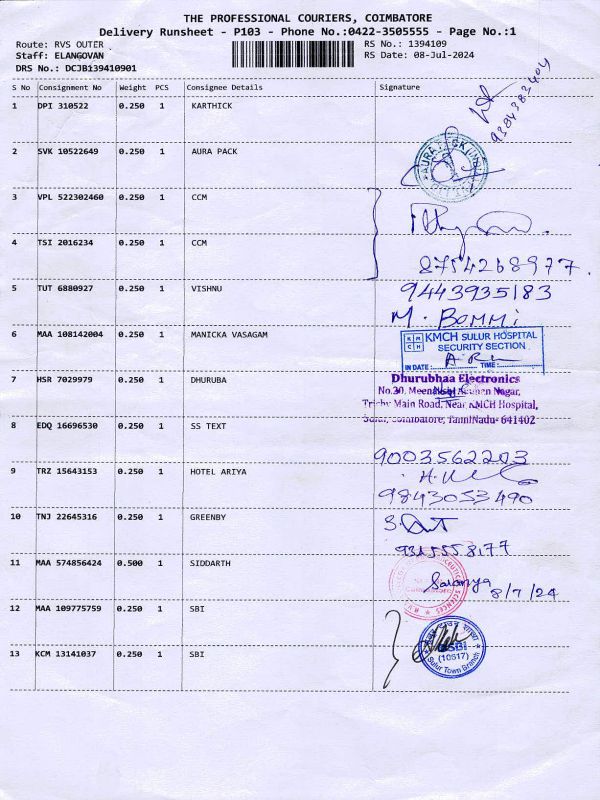 THE PROFESSIONAL COURIERS, COIMBATORE
Delivery Runsheet - P103 - Phone No.:0422-3505555 - Page No.:1
Route: RVS OUTER
RS No.: 1394109
Staff: ELANGOVAN
RS Date: 08-Jul-2024
DRS No.: DCJB139410901
S No Consignment No Weight PCS Consignee Details Signature
1 DPI 310522 0.250 1 KARTHICK
9384383404
2 SVK 10522649 0.250 1 AURA PACK
3 VPL 522302460 0.250 1 CCM
4 TSI 2016234 0.250 1 CCM
8754268977.
5 TUT 6880927 0.250 1 VISHNU 9443935183
M. BOMMI
6 MAA 108142004 0.250 1 MANICKA VASAGAM
KMCH SULUR HOSPITAL
SECURITY SECTION
IN DATE: TIME:
7 HSR 7029979 0.250 1 DHURUBA
Dhurubhaa Electronics
No.20, Nagar,
Trichy Main Road, Near KMCH Hospital,
Sulur, Coimbatore, TamilNadu- 641402
8 EDQ 16696530 0.250 1 SS TEXT
9003562203
9 TRZ 15643153 0.250 1 HOTEL ARIYA
9843053490
10 TNJ 22645316 0.250 1 GREENBY
9345558177
11 MAA 574856424 0.500 1 SIDDARTH
Saranya 8/7/24
12 MAA 109775759 0.250 1 SBI
13 KCM 13141037 0.250 1 SBI
SBI
(10617)
Sulur Town Branch